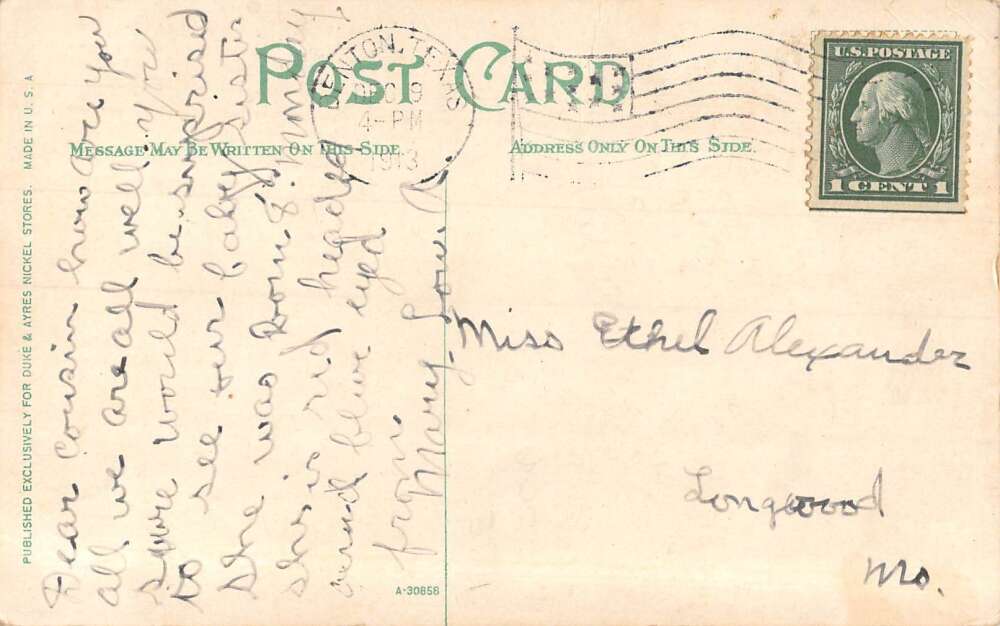 POST CARD
DENTON, TEXAS
9
4-PM
1913
U.S. POSTAGE
1 CENT 1
MESSAGE MAY BE WRITTEN ON THIS SIDE.
ADDRESS ONLY ON THIS SIDE.
PUBLISHED EXCLUSIVELY FOR DUKE & AYRES NICKEL STORES. MADE IN U. S. A
Dear cousin how are you
all we are all well you
sure would be surprised
to see our baby sister
She was born 8
she is rid headed
and blue eyed
from
Mary Lou. A.
Miss Ethel Alexander
Longwood
Mo.
A-30858